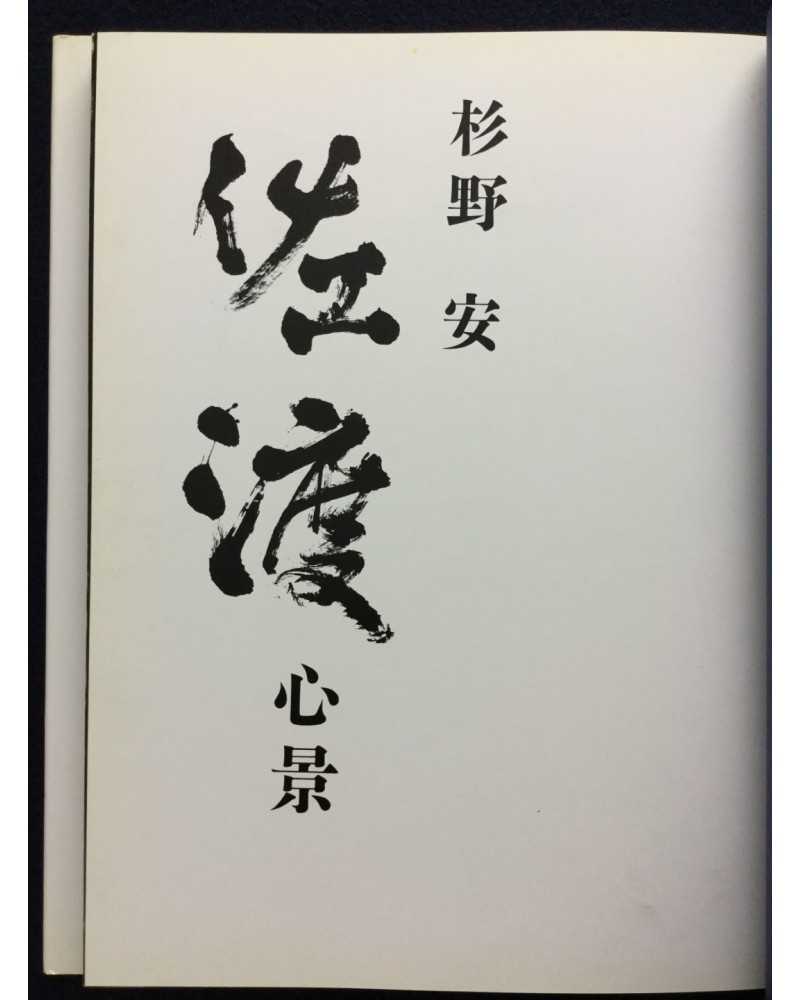 杉野 安
佐渡
心景